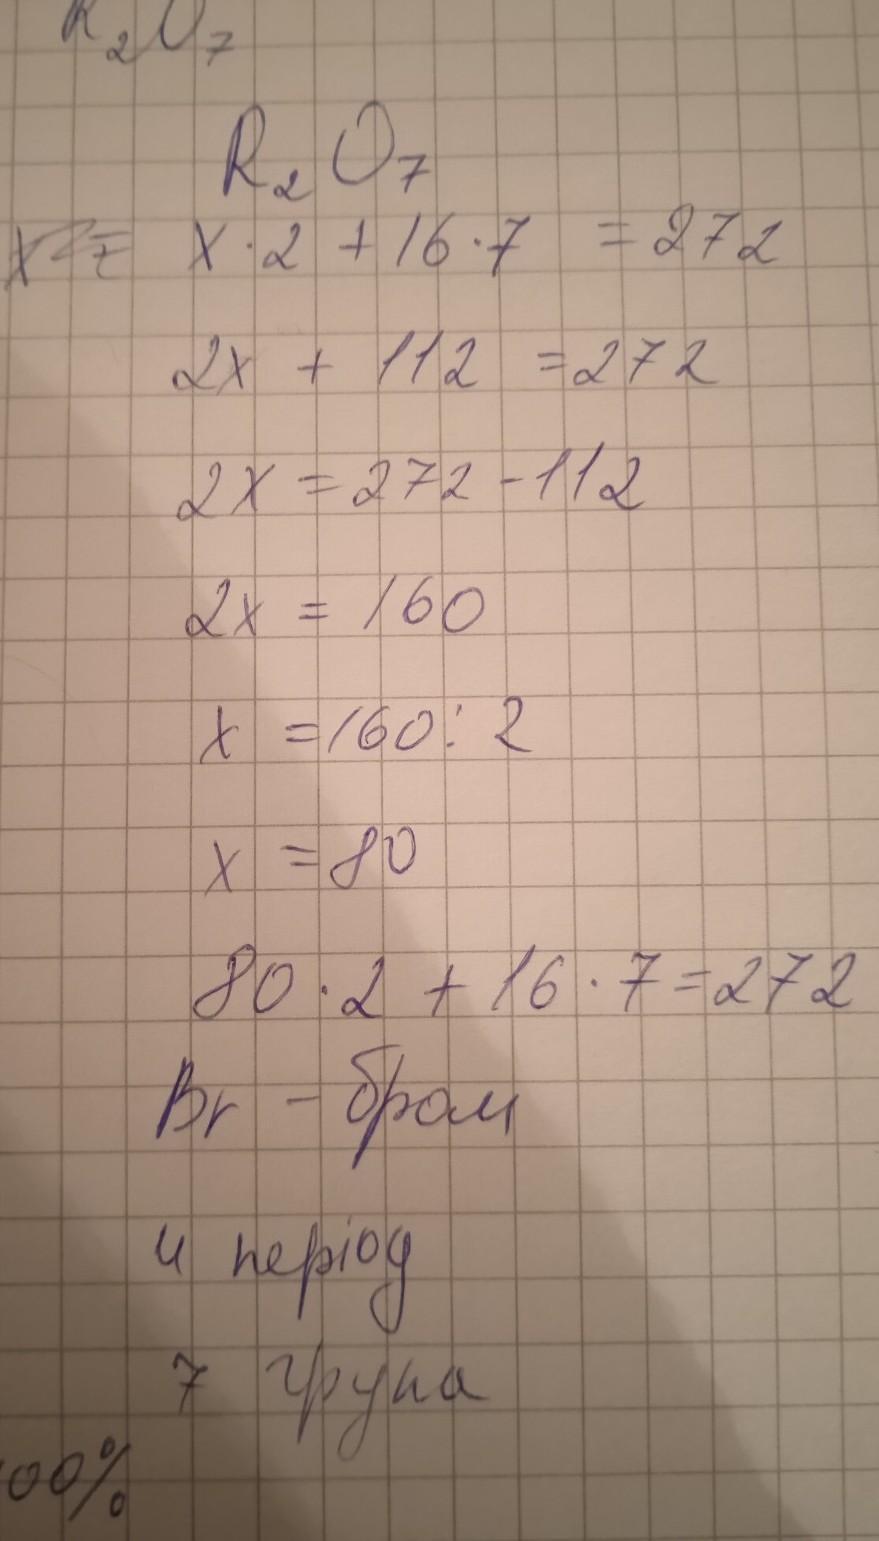 R₂O₇
R₂O₇
x · 2 + 16 · 7 = 272
2x + 112 = 272
2x = 272 - 112
2x = 160
x = 160 : 2
x = 80
80 · 2 + 16 · 7 = 272
Br - бром
4 період
7 група
00%